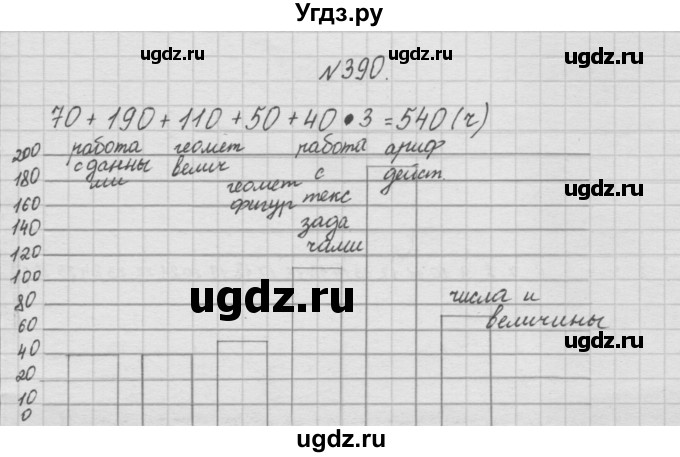 Угдз.ру
ugdz.ru ugdz.ru
№390.
70 + 190 + 110 + 50 + 40 • 3 = 540 (ч)
200 работа геомет работа ариф
с данны велич с дейст.
180 ми геомет текс
160 фигур зада
140 чами
120
100 ugdz.ru ugdz.ru
80 числа и
60 величины
40 ugdz.ru ugdz.ru
20
10
0
ugdz.ru